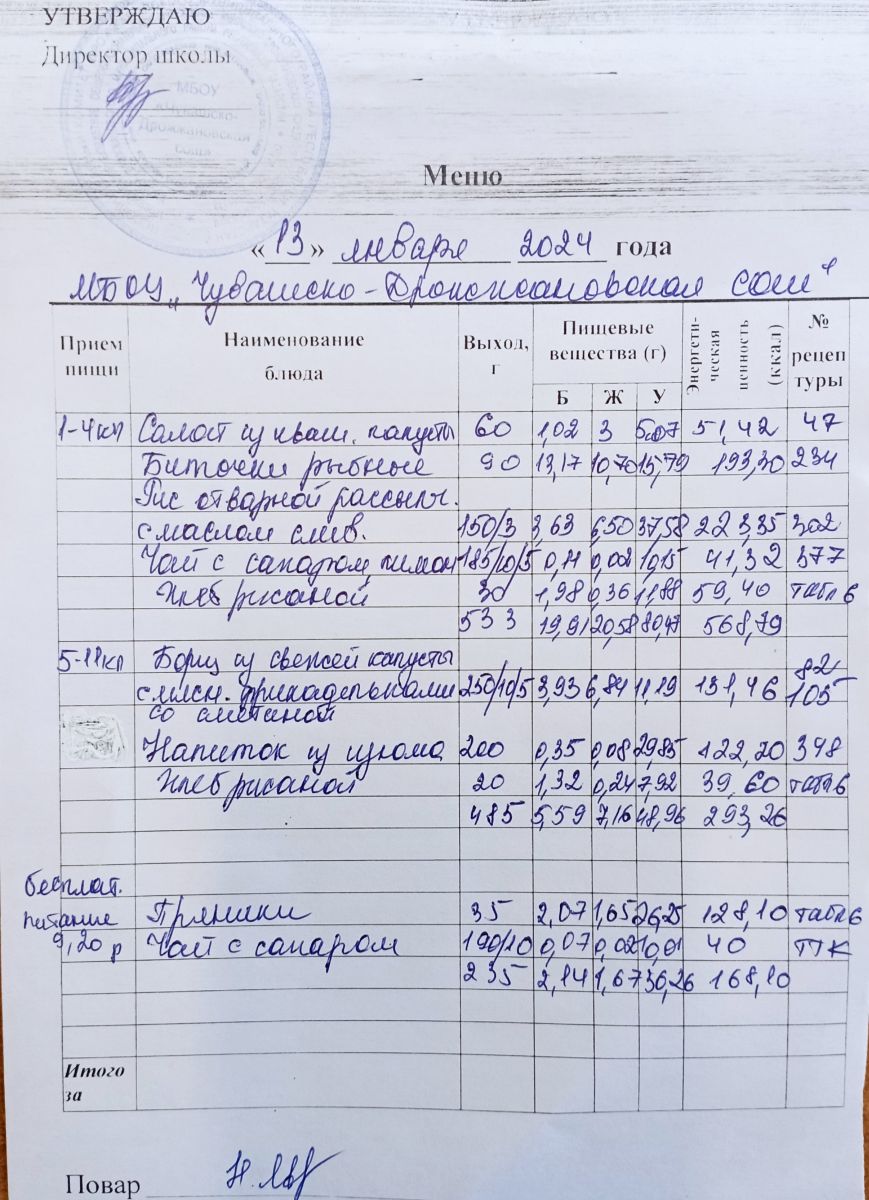 УТВЕРЖДАЮ
Директор школы
МБОУ
«Чувашско-
Дрожжановская
СОШ»
Меню
« 13 » января 2024 года
МБОУ „Чувашско-Дрожжановская СОШ"
Прием пищи Наименование блюда Выход, г Пищевые вещества (г) Б Ж У Энергети-ческая ценность (ккал) № рецептуры
1-4кл Салат из кваш. капусты 60 1,02 3 5,07 51,42 47
Биточки рыбные 90 13,17 10,70 15,79 193,30 234
Рис отварной рассыпч.
с маслом слив. 150/3 3,63 6,50 37,58 223,35 302
Чай с сахаром, лимон 185/10/5 0,11 0,002 10,15 41,32 377
Хлеб ржаной 30 1,98 0,36 11,88 59,40 табл 6
533 19,91 20,58 80,47 568,79
5-11кл Борщ из свежей капусты 82
с мясн. фрикадельками 250/10/5 3,93 6,84 11,19 131,46 105
со сметаной
Напиток из изюма 200 0,35 0,08 29,85 122,20 348
Хлеб ржаной 20 1,32 0,24 7,92 39,60 табл 6
485 5,59 7,16 48,96 293,26
бесплат.
питание Пряники 35 2,07 1,65 26,25 128,10 табл 6
9,20 р Чай с сахаром 190/10 0,07 0,02 10,01 40 ТТК
235 2,14 1,67 36,26 168,10
Итого
за
Повар